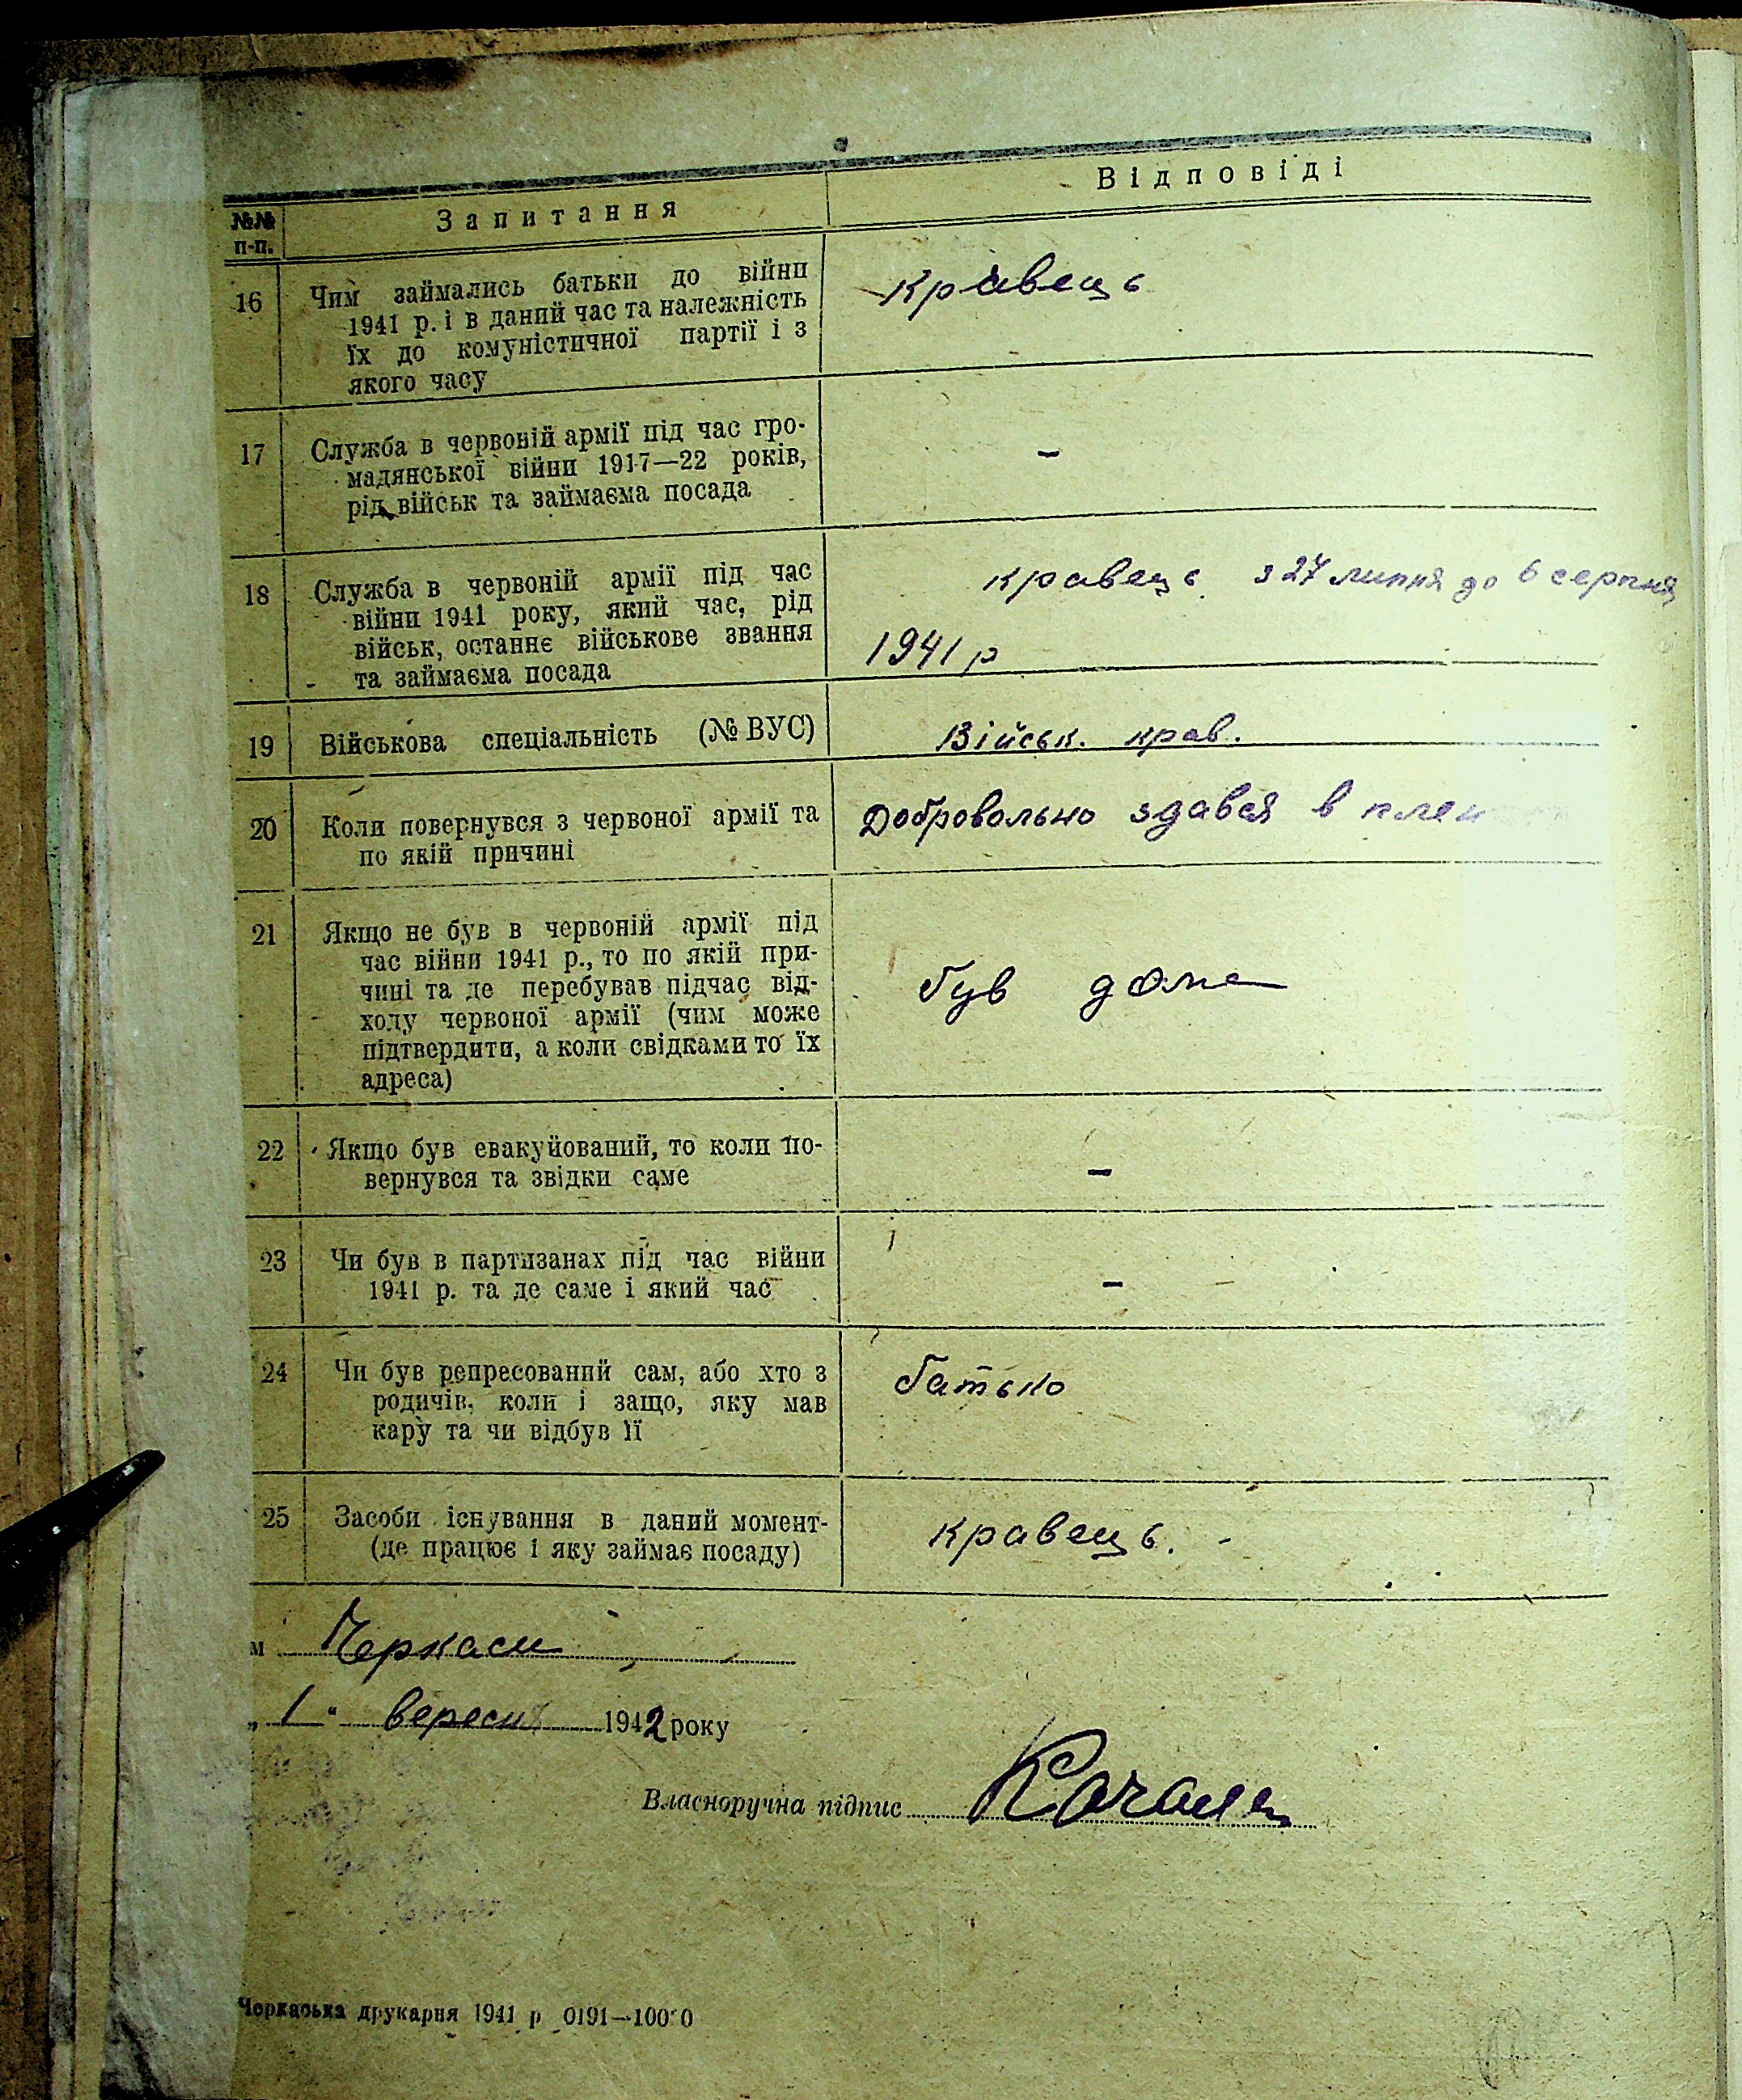 №№ п-п. Запитання Відповіді
16 Чим займались батьки до війни кравець
1941 р. і в даний час та належність
їх до комуністичної партії і з
якого часу
17 Служба в червоній армії під час гро- –
мадянської війни 1917—22 років,
рід військ та займаєма посада
18 Служба в червоній армії під час кравець з 27 липня до 6 серпня
війни 1941 року, який час, рід
військ, останнє військове звання 1941 р
та займаєма посада
19 Військова спеціальність (№ ВУС) Військ. крав.
20 Коли повернувся з червоної армії та Добровольно здався в плен
по якій причині
21 Якщо не був в червоній армії під
час війни 1941 р., то по якій при-
чині та де перебував підчас від- був дома
ходу червоної армії (чим може
підтвердити, а коли свідками то їх
адреса)
22 Якщо був евакуйований, то коли по-
вернувся та звідки саме –
23 Чи був в партизанах під час війни
1941 р. та де саме і який час –
24 Чи був репресований сам, або хто з батько
родичів, коли і защо, яку мав
кару та чи відбув її
25 Засоби існування в даний момент- кравець. -
(де працює і яку займає посаду)
м Черкаси
„ 1 “ вересня 1942 року
Власноручна підпис
Черкаська друкарня 1941 р 0191—10000